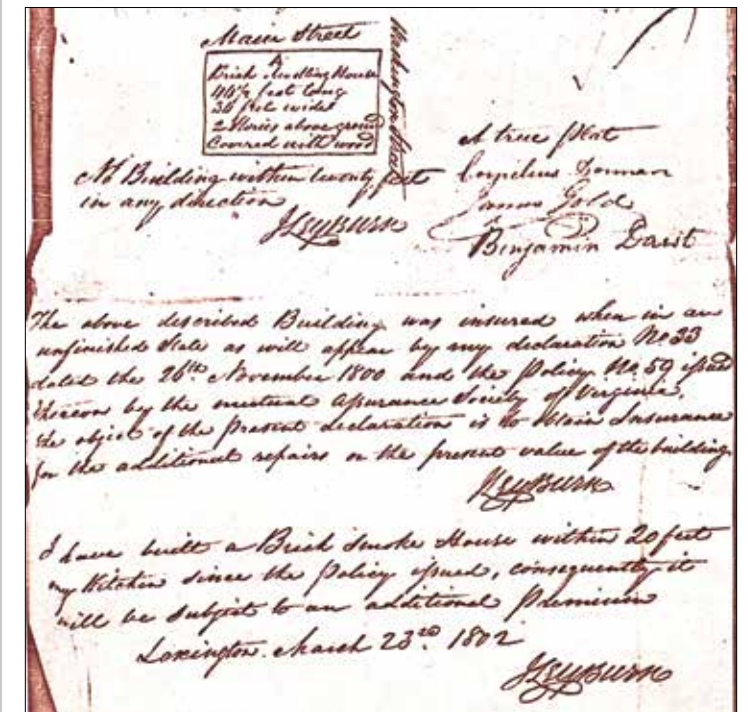 Main Street
Washington Street
A
Brick dwelling House
40½ feet long
30 feet wide
2 Stories above ground
Covered with wood
No Building within twenty feet
in any direction
JLeyburn
A true plat
Cornelius Dorman
James Gold
Benjamin Darst
The above described Building was insured when in an
unfinished State as will appear by my declaration No 33
dated the 26th November 1800 and the Policy No 59 issued
thereon by the mutual Assurance Society of Virginia.
the object of the present declaration is to obtain Insurance
for the additional repairs on the present value of the building
JLeyburn
I have built a Brick Smoke House within 20 feet
my Kitchen since the policy issued, consequently it
will be subject to an additional Premium
Lexington March 23rd 1802
JLeyburn